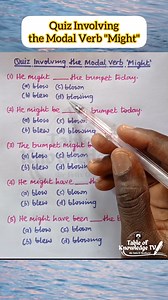 Quiz Involving
the Modal Verb "Might"
Quiz Involving the Modal Verb "Might"
(1) He might ___ the trumpet today.
(a) blow (c) blown
(b) blew (d) blowing
(2) He might be ___ trumpet today.
(a) blow (c) blown
(b) blew (d) blowing
(3) The trumpet might b
(a) blow (c) blown
(b) blew (d)
(4) He might have ___ the
(a) blow (c) blown
(b) blew (d) blowing
(5) He might have been ___ the
(a) blow (c) blown
(b) blew (d) blowing
Table of
Knowledge TV